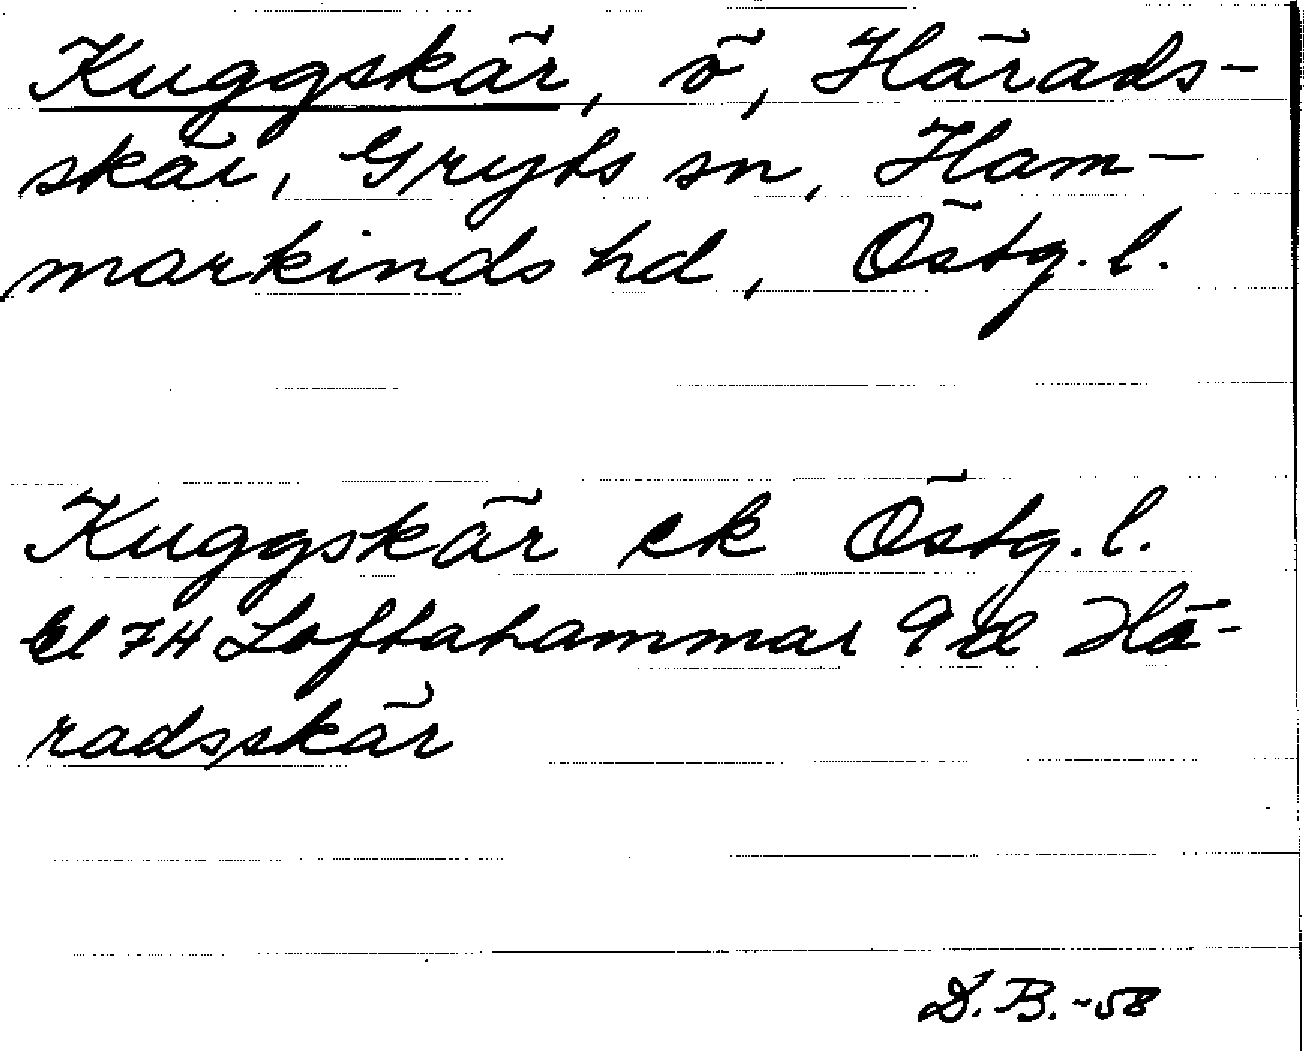 Kuggskär, ö, Härads-
skär, Gryts sn, Ham-
markinds hd, Östg. l.
Kuggskär ek Östg. l.
Bl 7H Loftahammar 9 d Hä-
radsskär
D.B. -58